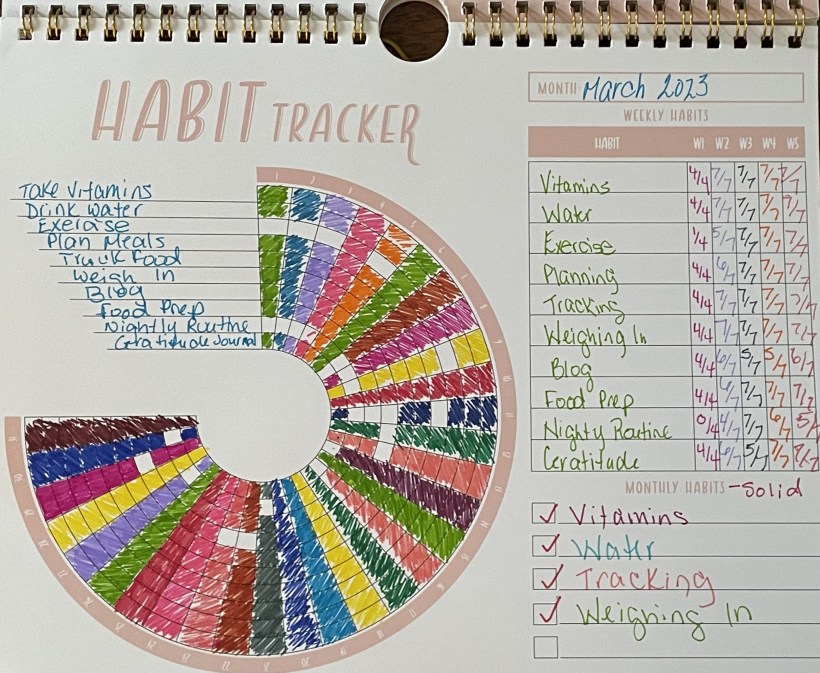 HABIT TRACKER
MONTH March 2023
WEEKLY HABITS
HABIT W1 W2 W3 W4 W5
Take Vitamins
Drink Water
Exercise
Plan Meals
Track Food
Weigh In
Blog
Food Prep
Nightly Routine
Gratitude Journal
Vitamins 4/4 7/7 7/7 7/7 7/7
Water 4/4 7/7 7/7 7/7 7/7
Exercise 1/4 5/7 7/7 7/7 7/7
Planning 4/4 6/7 7/7 7/7 7/7
Tracking 4/4 7/7 7/7 7/7 7/7
Weighing In 4/4 7/7 7/7 7/7 7/7
Blog 4/4 6/7 5/7 5/7 6/7
Food Prep 4/4 6/7 7/7 7/7 7/7
Nighty Routine 0/4 4/7 7/7 6/7 5/7
Gratitude 4/4 6/7 5/7 7/7
MONTHLY HABITS - Solid
Vitamins
Water
Tracking
Weighing In